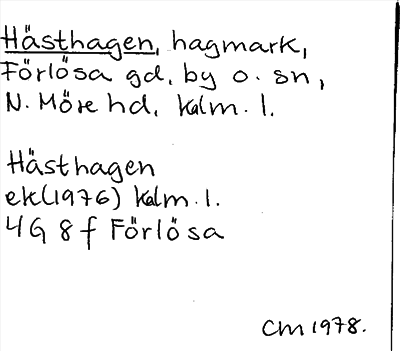 Hästhagen, hagmark,
Förlösa gd, by o. sn,
N. Möre hd, Kalm. l.
Hästhagen
ek(1976) Kalm. l.
4G 8f Förlösa
CM 1978.